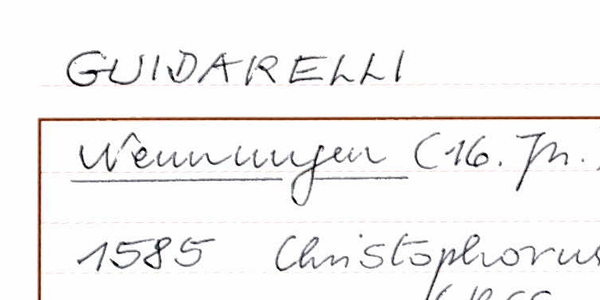 GUIDARELLI
Nennungen (16. Jh.)
1585 Christophorus